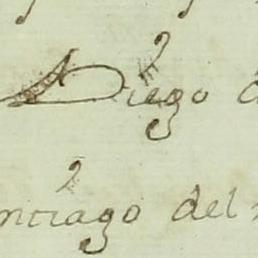 Diego
ntiago del